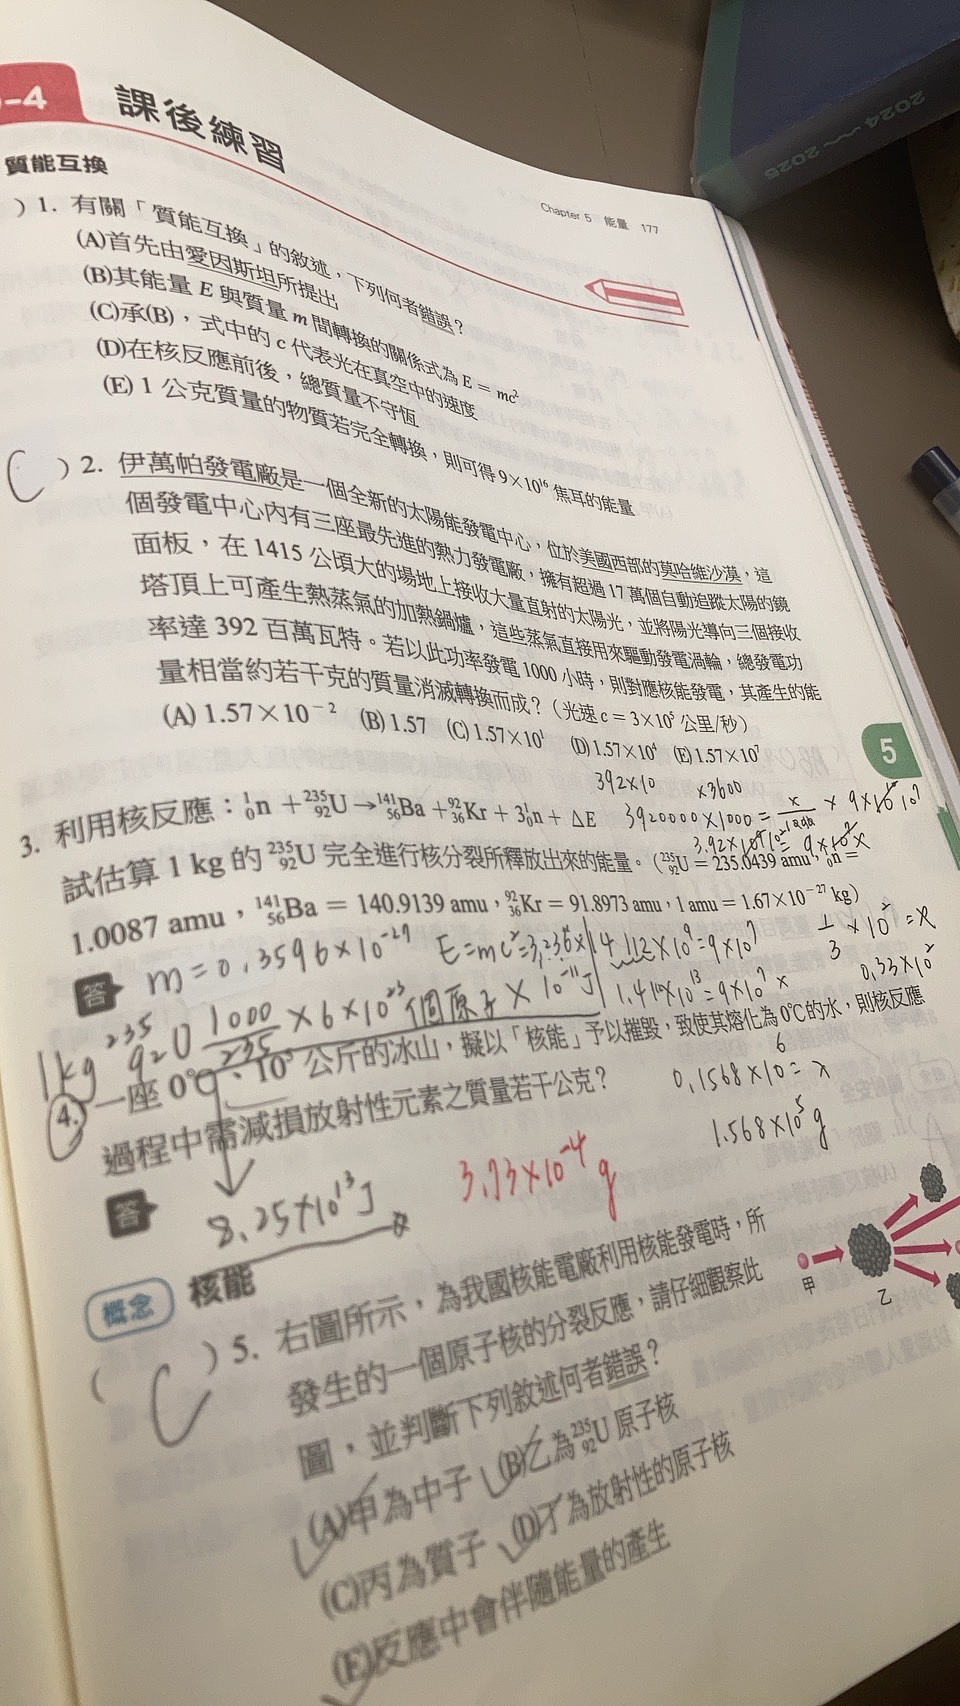 -4 課後練習
2024~2025
Chapter 5 能量 177
質能互換
) 1. 有關「質能互換」的敘述，下列何者錯誤？
(A)首先由愛因斯坦所提出
(B)其能量 E 與質量 m 間轉換的關係式為 E = mc²
(C)承(B)，式中的 c 代表光在真空中的速度
(D)在核反應前後，總質量不守恆
(E) 1 公克質量的物質若完全轉換，則可得 9×10¹⁶ 焦耳的能量
C ) 2. 伊萬帕發電廠是一個全新的太陽能發電中心，位於美國西部的莫哈維沙漠，這
個發電中心內有三座最先進的熱力發電廠，擁有超過 17 萬個自動追蹤太陽的鏡
面板，在 1415 公頃大的場地上接收大量直射的太陽光，並將陽光導向三個接收
塔頂上可產生熱蒸氣的加熱鍋爐，這些蒸氣直接用來驅動發電渦輪，總發電功
率達 392 百萬瓦特。若以此功率發電 1000 小時，則對應核能發電，其產生的能
量相當約若干克的質量消滅轉換而成？（光速 c = 3×10⁵ 公里/秒）
(A) 1.57×10⁻² (B) 1.57 (C) 1.57×10¹ (D) 1.57×10⁴ (E) 1.57×10⁷
5
392×10 ×3600
3. 利用核反應：¹₀n + ²³⁵₉₂U → ¹⁴¹₅₆Ba + ⁹²₃₆Kr + 3¹₀n + ΔE
3920000×1000 =
試估算 1 kg 的 ²³⁵₉₂U 完全進行核分裂所釋放出來的能量。（²³⁵₉₂U = 235.0439 amu，¹₀n =
1.0087 amu，¹⁴¹₅₆Ba = 140.9139 amu，⁹²₃₆Kr = 91.8973 amu，1 amu = 1.67×10⁻²⁷ kg）
答 m = 0.3596×10⁻²⁷ E = mc² = 3.236×10⁻¹¹J
14112×10⁹ = 9×10⁷
1/3 ×10² = x
1.41×10¹³ = 9×10⁷ x
0.33×10²
1kg ²³⁵₉₂U 1000/235 ×6×10²³ 個原子 ×
4. 一座 0℃、10⁵ 公斤的冰山，擬以「核能」予以摧毀，致使其熔化為 0℃的水，則核反應
過程中需減損放射性元素之質量若干公克？
0.1568×10⁶ = x
1.568×10⁵ g
答 8.25×10¹³J
3.73×10⁻⁴ g
概念 核能
( C ) 5. 右圖所示，為我國核能電廠利用核能發電時，所
發生的一個原子核的分裂反應，請仔細觀察此
圖，並判斷下列敘述何者錯誤？
(A)甲為中子 (B)乙為²³⁵₉₂U 原子核
(C)丙為質子 (D)丁為放射性的原子核
(E)反應中會伴隨能量的產生
甲
乙